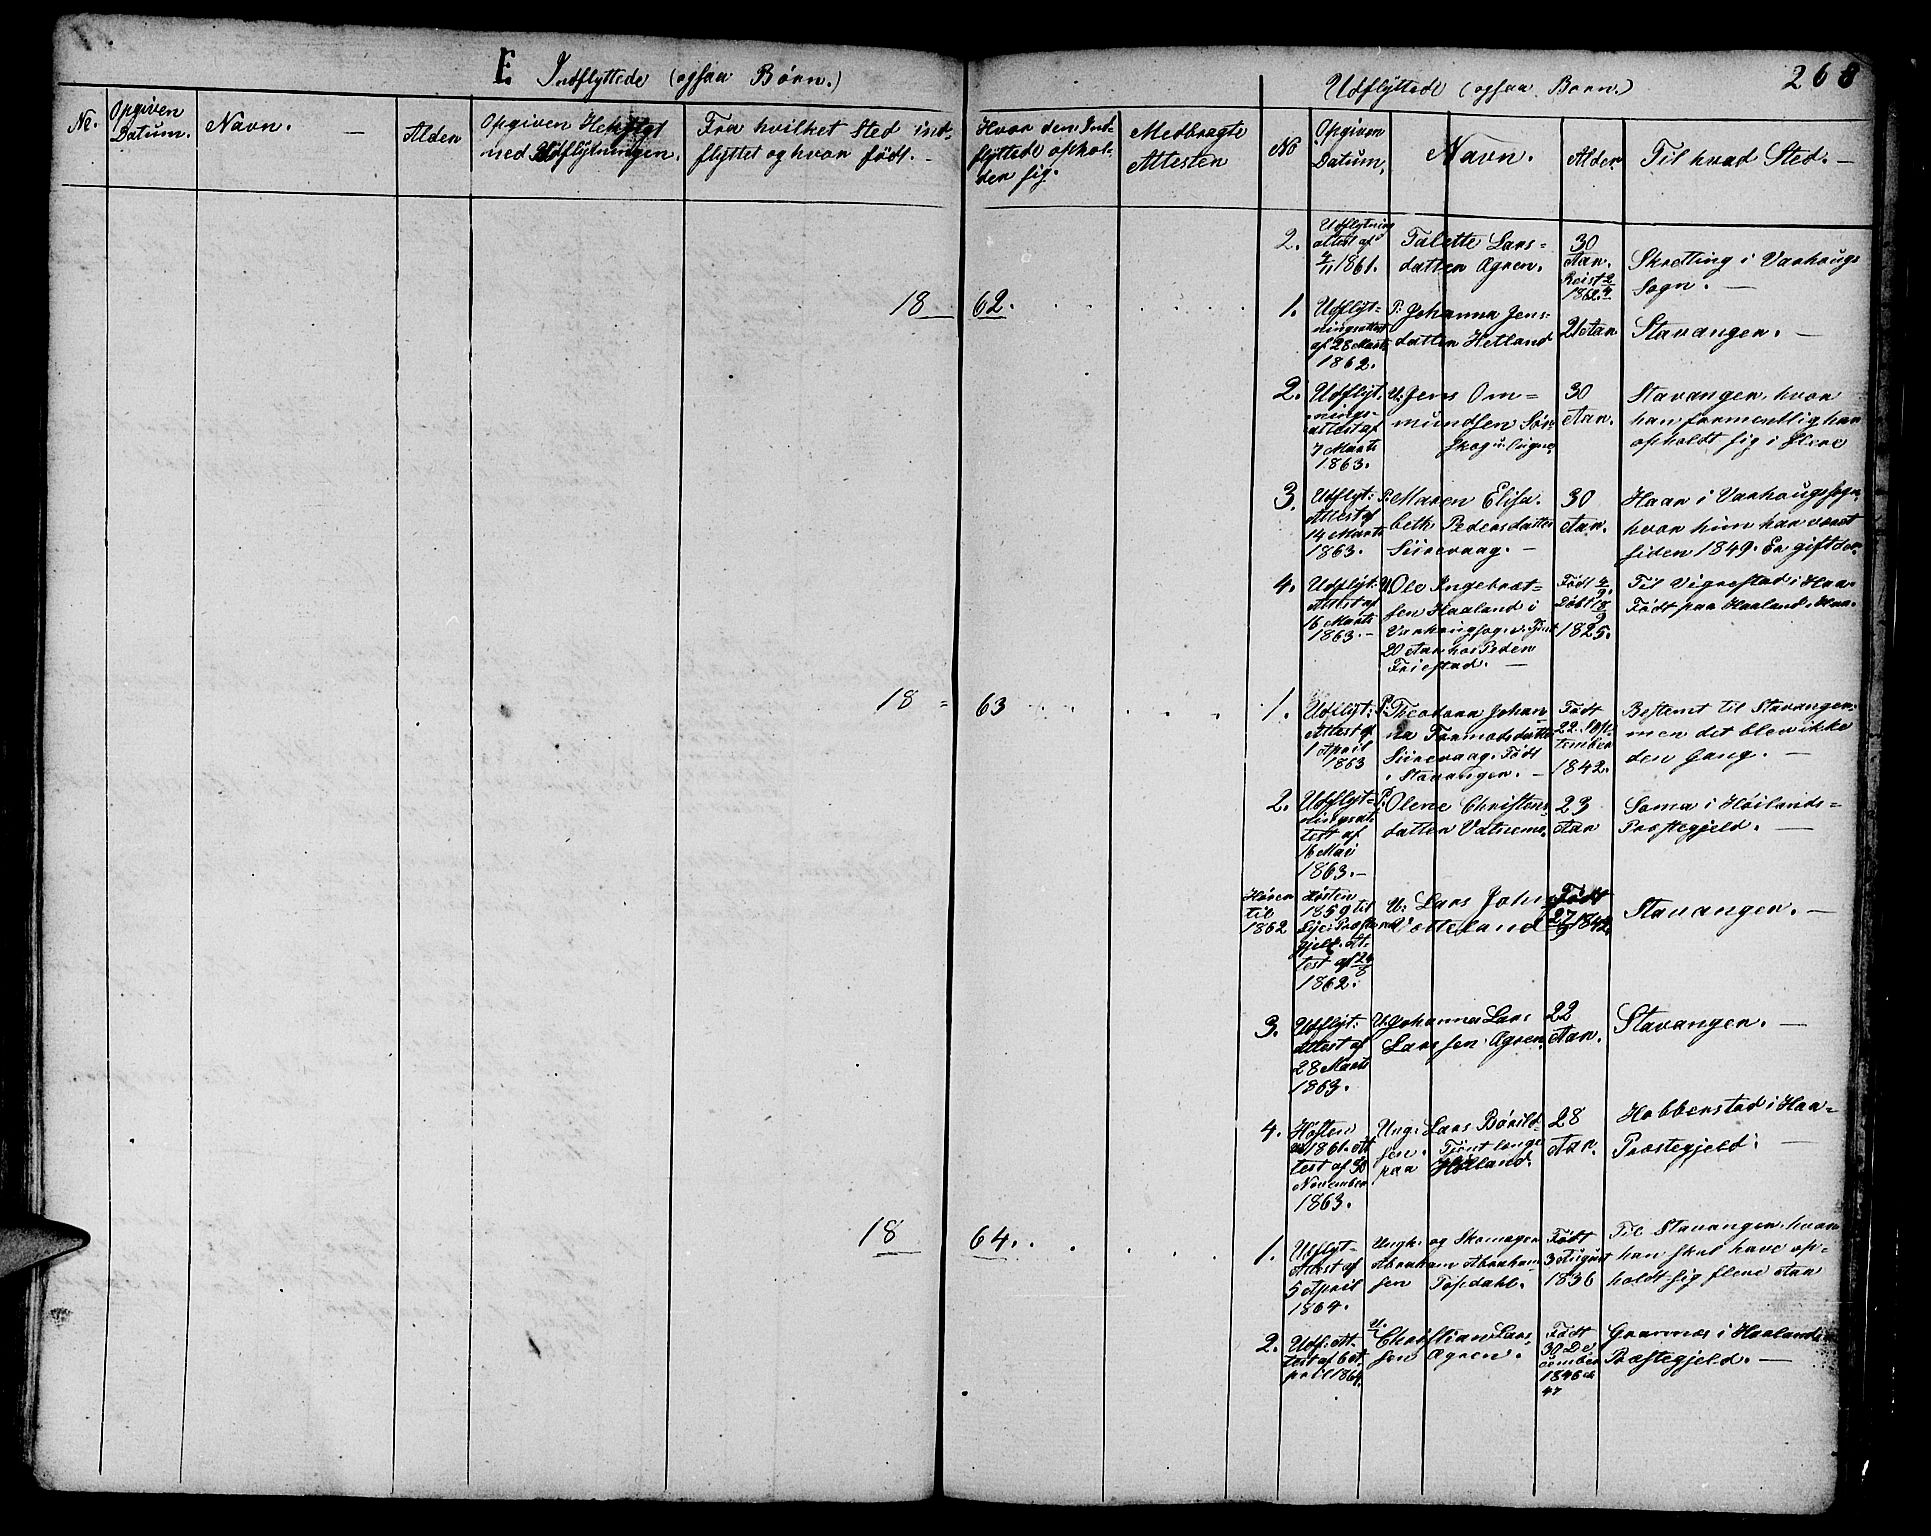 E Indflyttede (ogsaa Børn.)
No. Opgiven Datum. Navn. — Alder Opgiven Hensigt med Udflytningen. Fra hvilket Sted ind-
flyttet og hvor født. —
18 62.
18 = 63
18 64.
Udflyttede (ogsaa Børn.) 268
Hvor den Ind-
flyttede ophol-
der sig.
Medbragte
Attester
No
Opgiven
Datum.
Navn.
Alder
Til hvad Sted. —
2.
Udflytnings
attest af
4/11 1861.
Talette Lars-
datter Ogren.
30
Aar.
Reist 2/4
1862.
Skretting i Varhaugs
Sogn. —
1.
Udflyt-
ningsattest
af 28 Marts
1862.
P: Johanna Jens-
datter Hetland
26 Aar
Stavanger. —
2.
Udflyt-
nings-
attest af
7 Marts
1863.
U: Jens Om-
mundsen Sør
Skog
30
Aar.
Stavanger, hvor
han formentlig har
opholdt sig i flere
3.
Udflyt:
Attest af
14 Marts
1863.
P: Maren Elisa-
beth Pedersdatter
Siirevaag. —
30
Aar.
Haar i Varhougs sogn,
hvor hun har været
siden 1849. Er gift der.
4.
Udflyt:
Attest af
16 Marts
1863. —
U: Ole Ingebret-
sen Haaland i
Varhougsogn. Tjent
20 Aar hos Peder
Friestad. —
Født 4/9.
Døbt 18/9
1825.
Til Vigrestad i Haa-
Født paa Haaland i Haa.
1.
Udflyt:
Attest af
1 April
1863
P: Theodora Johan-
na Tormodsdatter
Siirevaag. Født
i Stavanger. —
Født
22 Sep-
tember
1842.
Bestemt til Stavanger.
men det blev ikke
den Gang. —
2.
Udflyt-
ningsat
test af
16 Mai
1863. —
P: Olene Christens-
datter Vatnemo.
23
Aar
Soma i Høilands-
Præstegjeld. —
Hører
til
1862
Høsten
1859 til
Lye: Præste
gjeld. At-
test af 24/8
1862.
U: Lars John
Votteland
Født
27/9 1842.
Stavanger. —
3.
Udflyt:
Attest af
28 Marts
1863.
U: Johannes Lars
Larssen Ogren.
22
Aar.
Stavanger. —
4.
Høsten
1861. At
test af 30
November
1863.
Ung: Lars Børild-
sen. Tjent længe
paa Høiland.
28
Aar.
Hobberstad i Haa-
Præstegjeld. —
1.
Udflyt-
Attest af
5 April
1864.
Ungk. og Skomager
Abraham Abraham-
sen Topdahl.
Født
3 August
1836
Til Stavanger, hvor
han skal have op-
holdt sig flere Aar
2.
Udf: At-
test af 6 A-
pril 1864.
U. Christian Lars-
sen Ogren.
Født
30 De-
cember
1846 ell
47
Gran
i Haalands
Præstegjeld. —